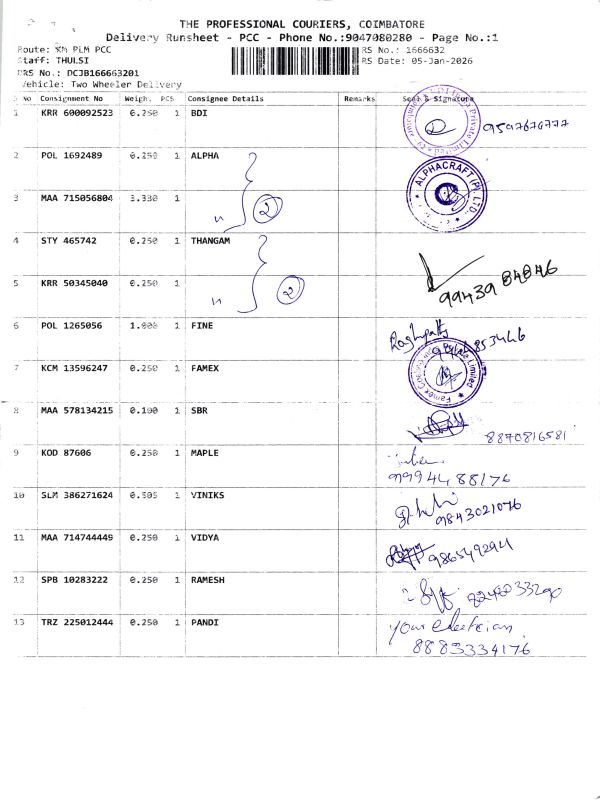 THE PROFESSIONAL COURIERS, COIMBATORE
Delivery Runsheet - PCC - Phone No.:9047080280 - Page No.:1
Route: KM PLM PCC RS No.: 1666632
Staff: THULSI RS Date: 05-Jan-2026
DRS No.: DCJB166663201
Vehicle: Two Wheeler Delivery
S No Consignment No Weight PCS Consignee Details Remarks Seal & Signature
1 KRR 600092523 0.250 1 BDI
Private Limited
9597676777
2 POL 1692489 0.250 1 ALPHA
ALPHACRAFT (P) LTD.
3 MAA 715056804 3.330 1
" 2
4 STY 465742 0.250 1 THANGAM
9943984846
5 KRR 50345040 0.250 1
" 2
6 POL 1265056 1.000 1 FINE
Raghupathy
853446
7 KCM 13596247 0.250 1 FAMEX
Famex Private Limited
8 MAA 578134215 0.100 1 SBR
8870816581
9 KOD 87606 0.250 1 MAPLE
9994488176
10 SLM 386271624 0.505 1 VINIKS
9843021076
11 MAA 714744449 0.250 1 VIDYA
986549294
12 SPB 10283222 0.250 1 RAMESH
13 TRZ 225012444 0.250 1 PANDI
your electrician
8883334176